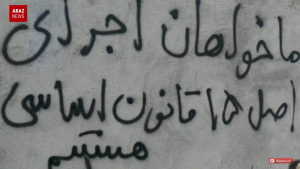 ARAZ
NEWS
ما خواهان اجرای
اصل ۱۵ قانون اساسی
هستیم